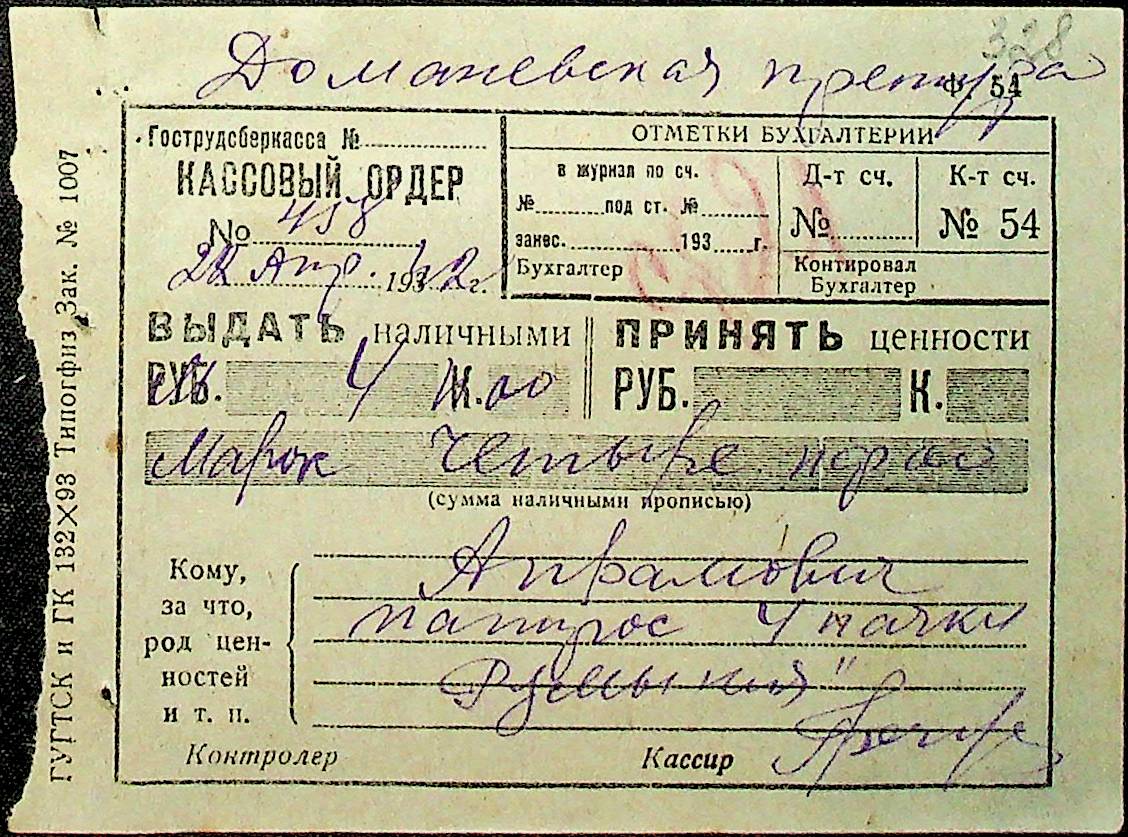 328
Доманевская претура
Ф. 54
Гострудсберкасса №
КАССОВЫЙ ОРДЕР
№ 458
28 Апр. 1942 г.
ОТМЕТКИ БУХГАЛТЕРИИ
в журнал по сч.
№ под ст. №
занес. 193 г.
Бухгалтер
Д-т сч.
№
К-т сч.
№ 54
Контировал
Бухгалтер
ВЫДАТЬ наличными
РУБ. 4 М. 00
ПРИНЯТЬ ценности
РУБ. К.
Марок Четыре
(сумма наличными прописью)
Кому,
за что,
род цен-
ностей
и т. п.
папирос 4 пачки
Контролер
Кассир
ГУГТСК и ГК 132×93 Типогфиз Зак. № 1007